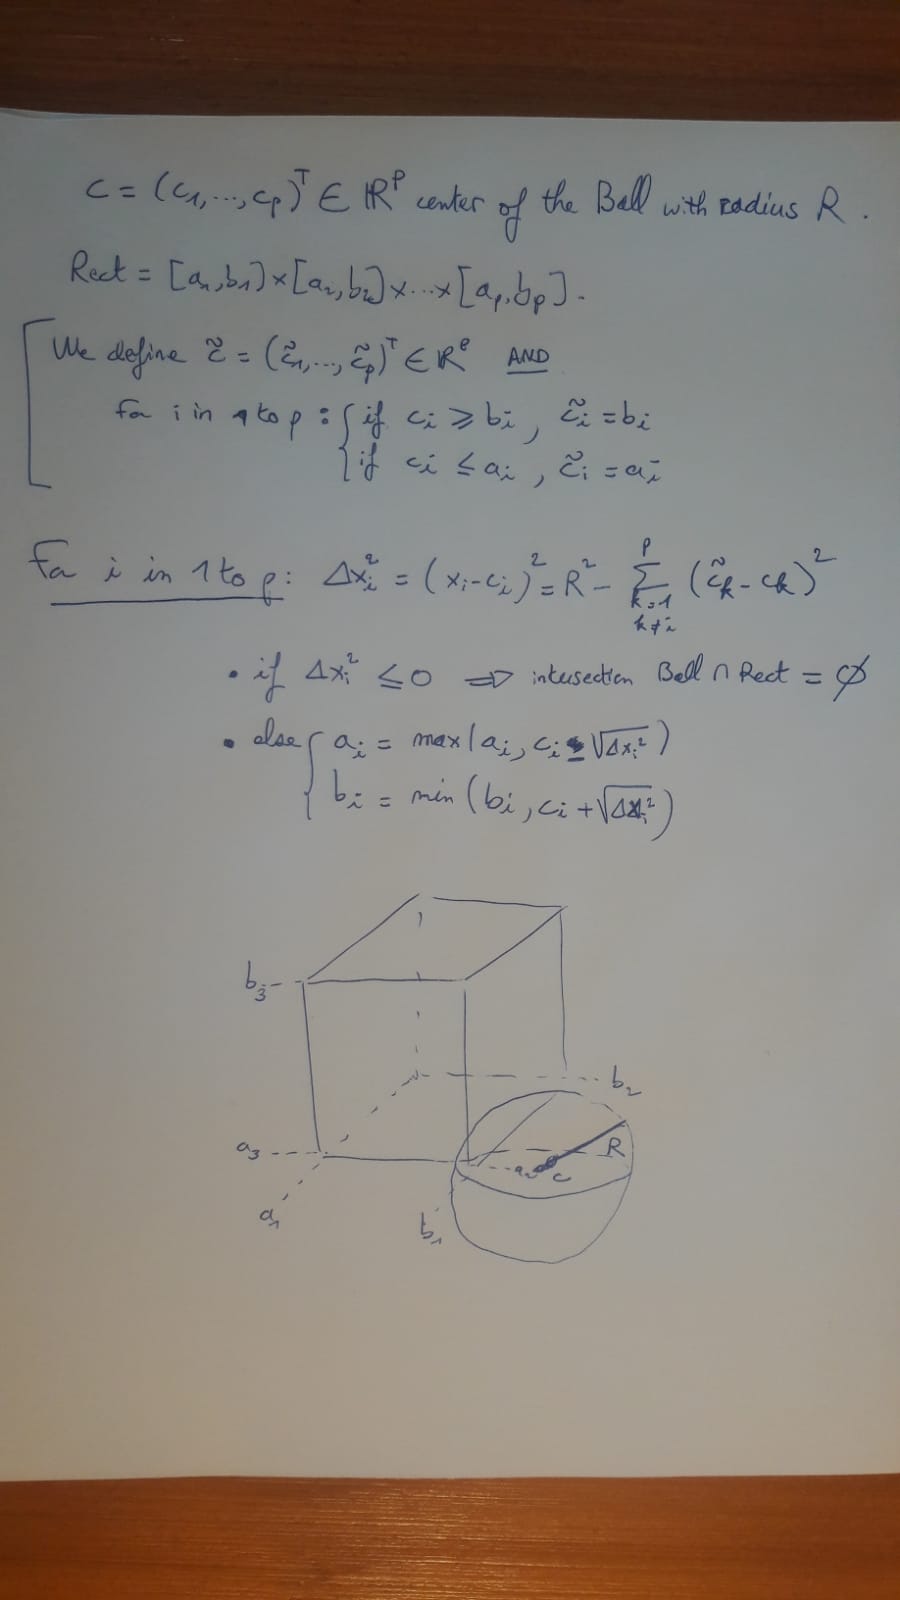 C = (c₁,...,cₚ)ᵀ ∈ ℝᵖ center of the Ball with radius R.
Rect = [a₁,b₁]×[a₂,b₂]×...×[aₚ,bₚ].
We define c̃ = (c̃₁,...,c̃ₚ)ᵀ ∈ ℝᵖ AND
For i in 1 to p : { if cᵢ ⩾ bᵢ , c̃ᵢ = bᵢ
if cᵢ ≤ aᵢ , c̃ᵢ = aᵢ
For i in 1 to p: Δxᵢ² = (xᵢ-cᵢ)² = R² - Σ_{k=1, k≠i}^{p} (c̃ₖ - cₖ)²
• if Δxᵢ² ≤ 0 ⇒ intersection Ball ∩ Rect = ∅
• else { aᵢ = max(aᵢ, cᵢ - √Δxᵢ²)
bᵢ = min (bᵢ, cᵢ + √Δxᵢ²)
b₃
b₂
a₃
R
a₂
c
a₁
b₁